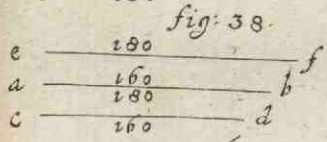 fig: 38.
e 180 f
a 160 b
180
c 160 d